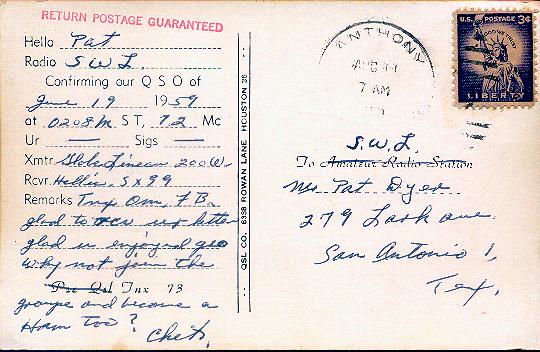 RETURN POSTAGE GUARANTEED
Hello Pat
Radio S W L.
Confirming our Q S O of
June 19 1959
at 0208 M ST, 7.2 Mc
Ur — Sigs —
Xmtr. Globe Linear 200 W
Rcvr. Hallic. SX99
Remarks Tnx Om, F B.
glad to rcv ur letter
glad u enjoyed
Why not join the
Pse Qsl Tnx 73
groupe and become a
Ham too?
Chet.
QSL CO. 6338 ROWAN LANE HOUSTON 36
ANTHONY
7 AM
U.S. POSTAGE 3¢
IN GOD WE TRUST
LIBERTY
S.W.L.
To Amateur Radio Station
Pat Dyer
279 Lark ave.
San Antonio 1,
Tex.